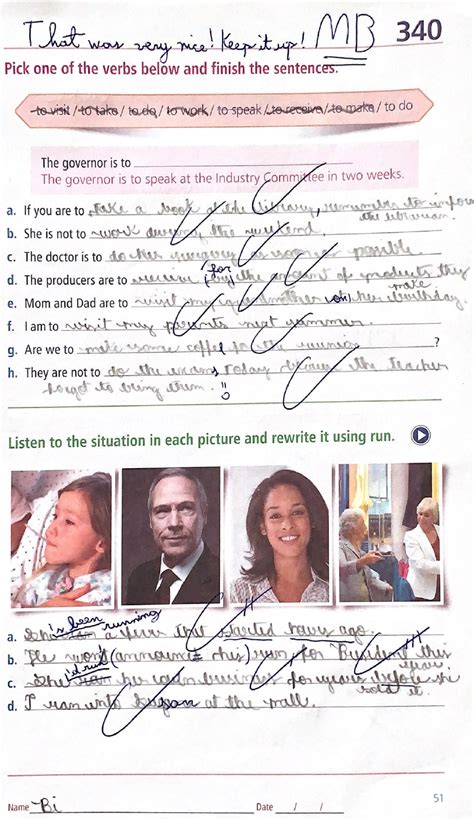 That was very nice! Keep it up! MB 340
Pick one of the verbs below and finish the sentences.
to visit / to take / to do / to work / to speak / to receive / to make / to do
The governor is to
The governor is to speak at the Industry Committee in two weeks.
a. If you are to take a book at the library, remember to inform
the librarian.
b. She is not to work during the weekend.
c. The doctor is to do her surgery as soon as possible
d. The producers are to receive for the amount of products they
make
e. Mom and Dad are to visit my grandmother on her birthday.
f. I am to visit my parents next summer.
g. Are we to make some coffee for the evening ?
h. They are not to do the exams today because the teacher
forgot to bring them.
Listen to the situation in each picture and rewrite it using run.
's been running
a. She a fever that started hours ago.
b. He won't announce his run for President this
year.
'd run
c. She ran her own business for years before she
sold it.
d. I ran into Susan at the mall.
51
Name Bi Date / /